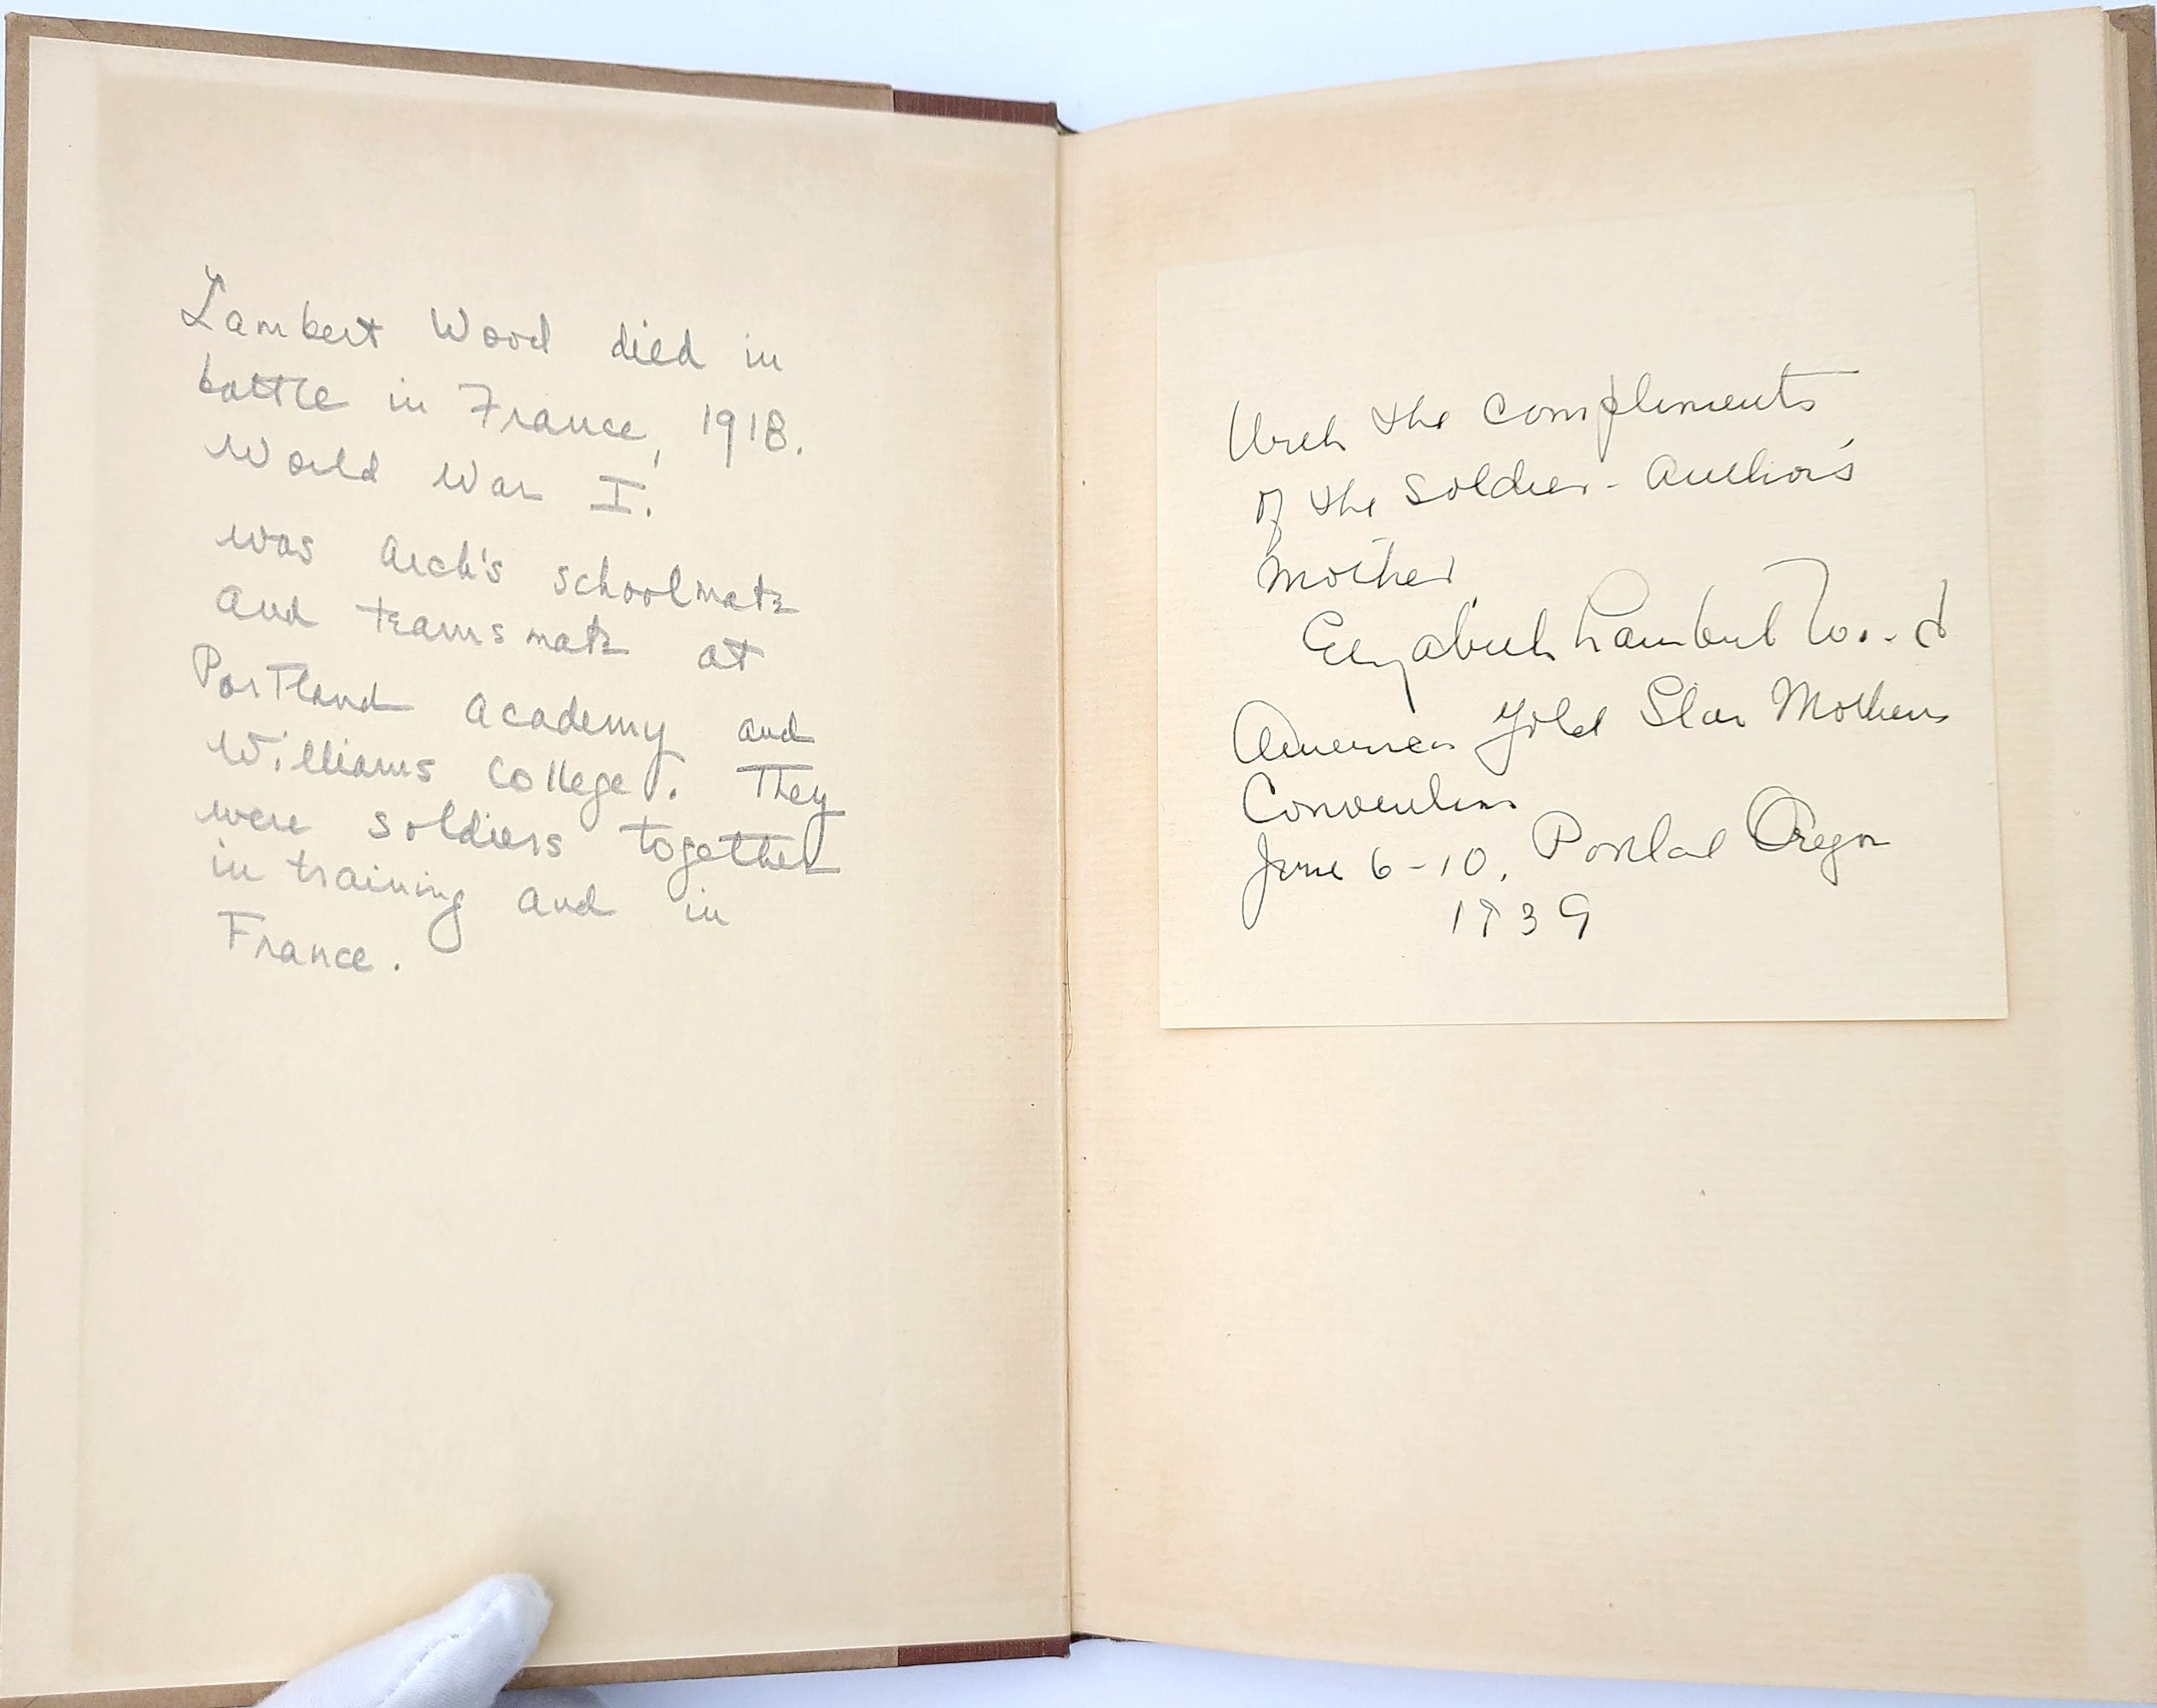 Lambert Wood died in
battle in France, 1918.
World War I.
was Arch's schoolmate
and teamsmate at
Portland Academy and
Williams College. They
were soldiers together
in training and in
France.
With the compliments
of the soldier-author's
mother,
Elizabeth Lambert Wood
American Gold Star Mothers
Convention
June 6-10, Portland Oregon
1939